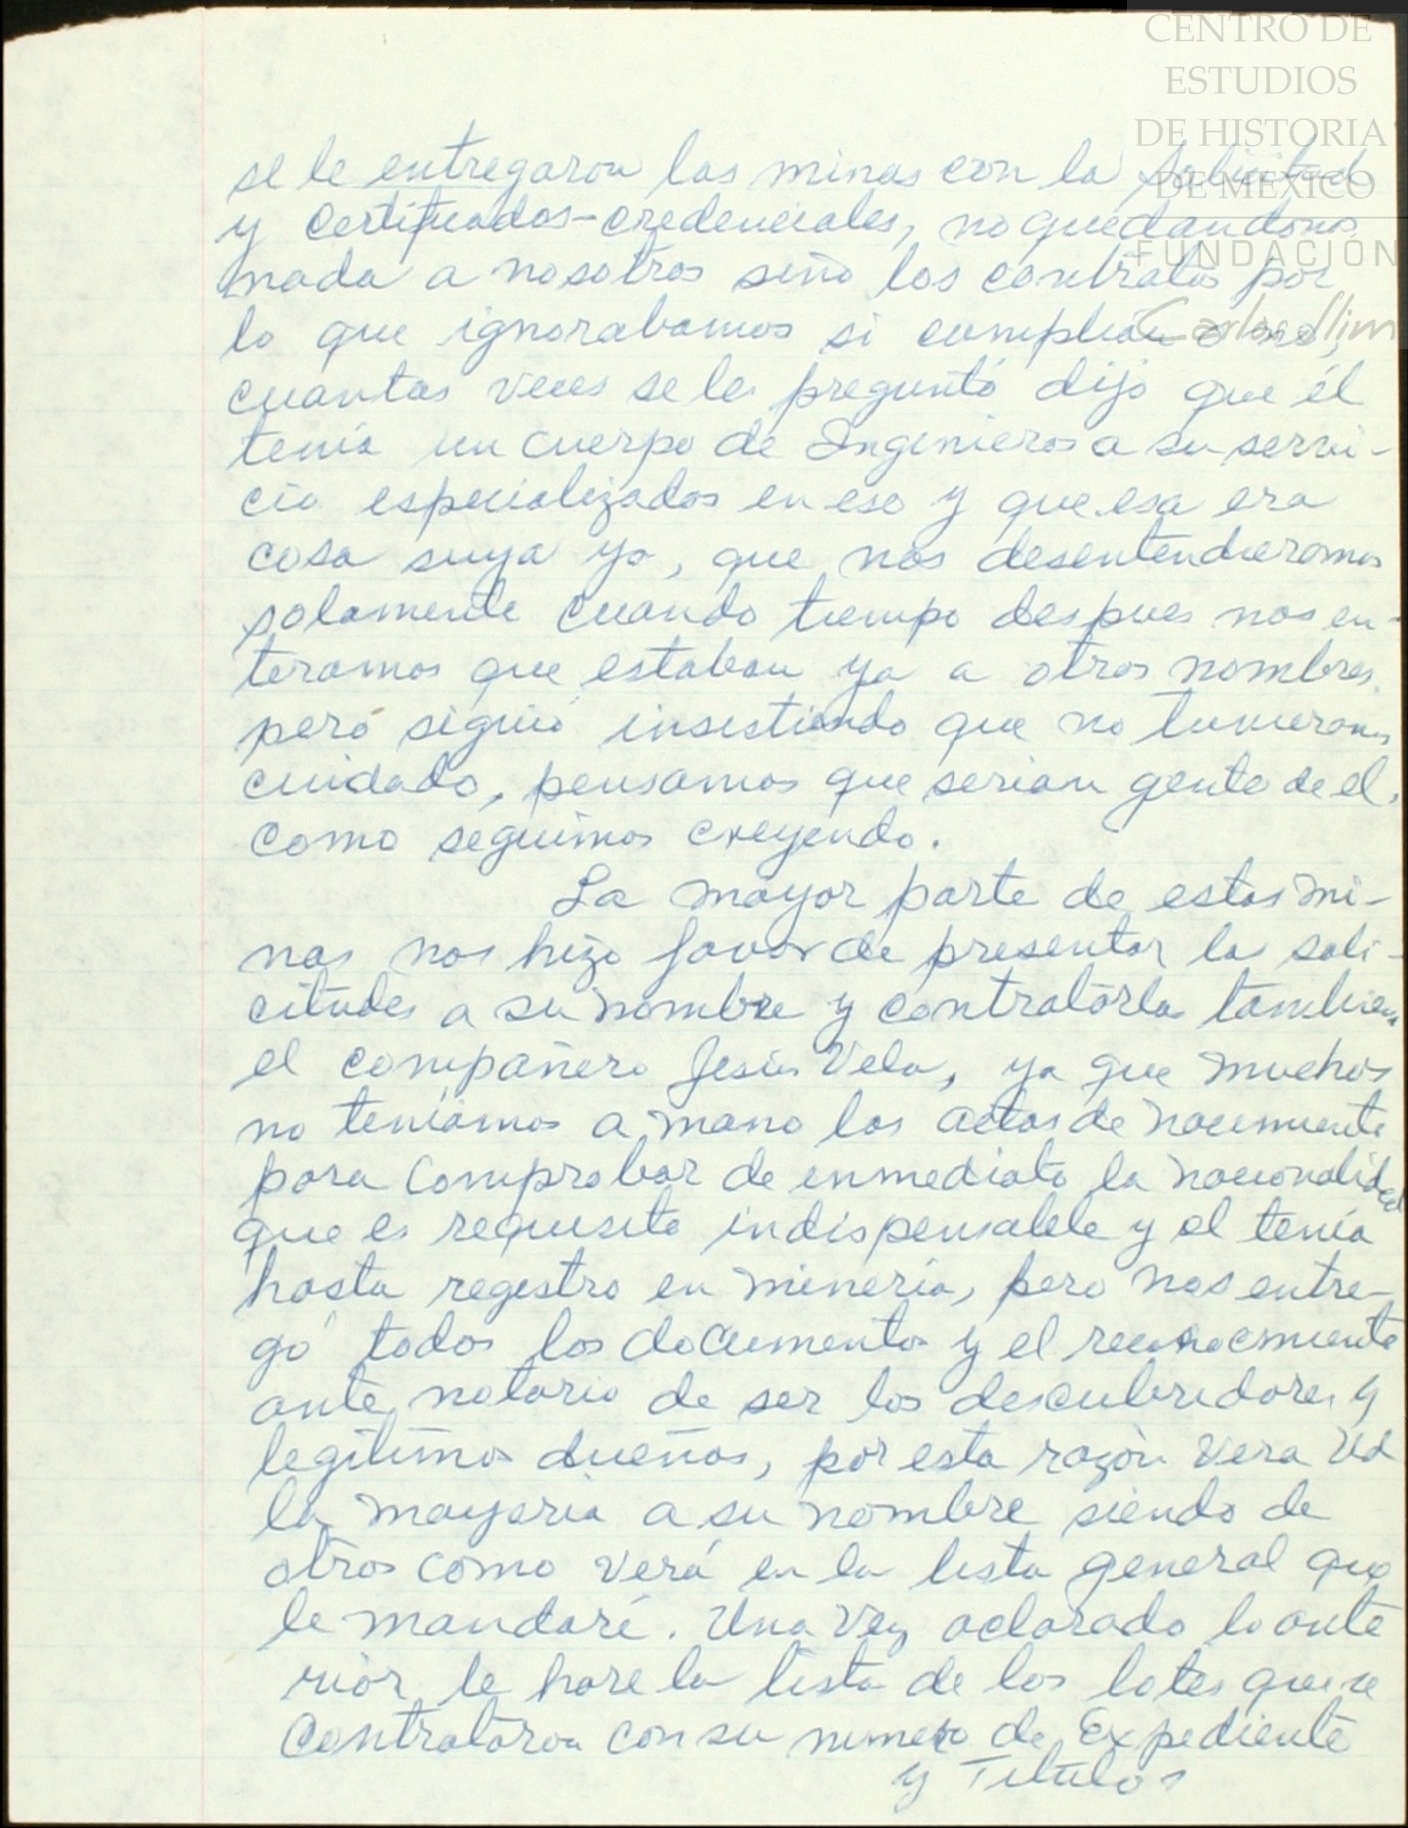 CENTRO DE
ESTUDIOS
DE HISTORIA
DE MÉXICO
FUNDACIÓN
Carlos Slim
se le entregaron las minas con la solicitud
y certificados-credenciales, no quedandonos
nada a nosotros sino los contratos por
lo que ignorabamos si cumplian o no,
cuantas veces se le preguntó dijo que él
tenía un cuerpo de Ingenieros a su servi-
cio especializados en eso y que esa era
cosa suya ya, que nos desentendieramos
solamente cuando tiempo despues nos en-
teramos que estaban ya a otros nombres
pero siguió insistiendo que no tuvieramos
cuidado, pensamos que serian gente de el,
como seguimos creyendo.
La mayor parte de estas mi-
nas nos hizo favor de presentar las soli-
citudes a su nombre y contratarlas tambien
el compañero Jesús Vela, ya que muchos
no teniamos a mano las actas de nacimiento
para comprobar de inmediato la nacionalidad
que es requisito indispensable y el tenía
hasta registro en mineria, pero nos entre-
gó todos los documentos y el reconocimiento
ante notario de ser los descubridores y
legítimos dueños, por esta razón vera Ud
la mayoria a su nombre siendo de
otros como verá en la lista general que
le mandaré. Una vez aclarado lo ante
rior le hare la lista de los lotes que se
contrataron con su numero de Expediente
y Titulos